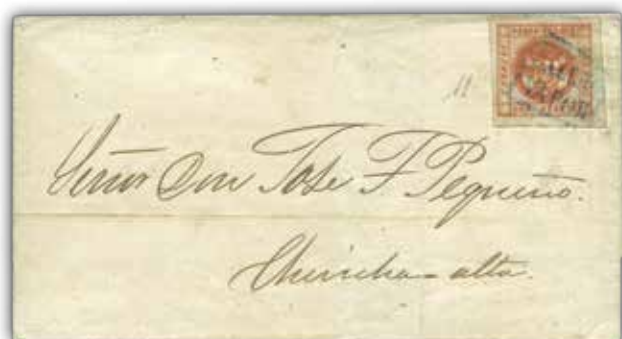 11
Señor Don Jose F Pequeño.
Chincha=alta.